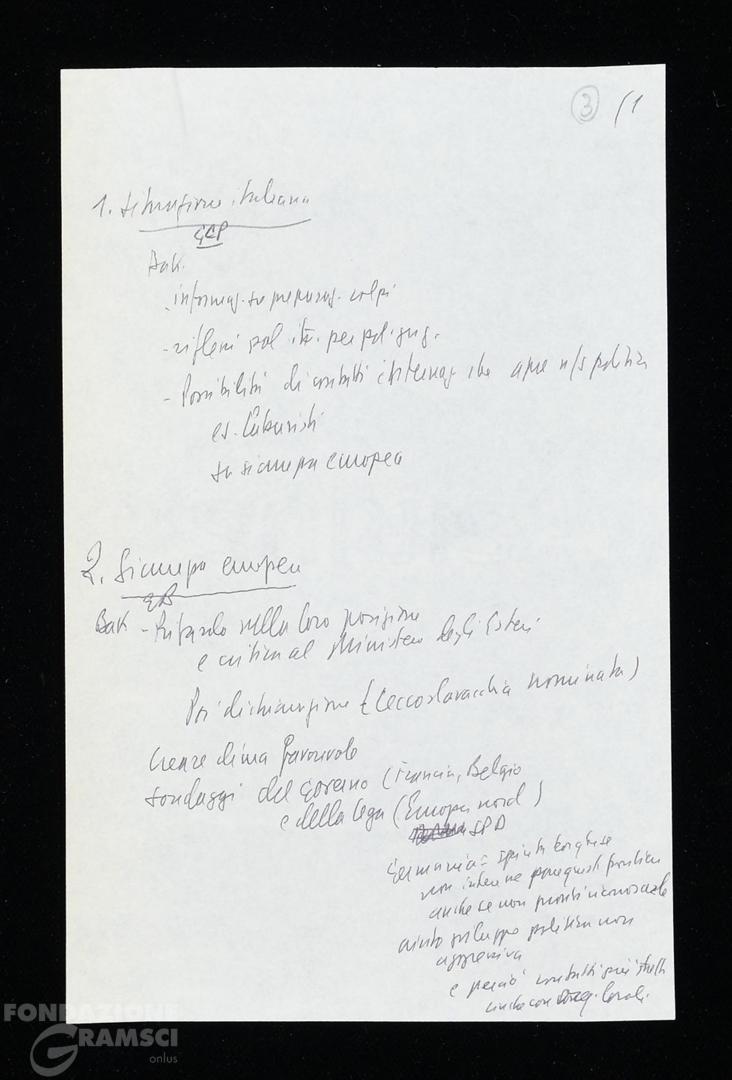 3 /1
1. Situazione italiana
GCP
Bak.
- informaz. su preparaz. colpi
- riflessi pol. it. per pol. jug.
- Possibilità di contatti internaz. che apre ns politica
es. Laburisti
su sicurezza europea
2. Sicurezza europea
Bak - Ritardo nella loro posizione
e critica al Ministero degli Esteri
Poi dichiarazione (Cecoslovacchia nominata)
Creare clima favorevole
sondaggi del governo (Francia, Belgio
e della Lega (Europa nord)
SPD
Germania = spinta borghese
non intervenne
anche se non
aiuto sviluppo politica non
aggressiva
e perciò contatti più stretti
anche con
FONDAZIONE
GRAMSCI
onlus